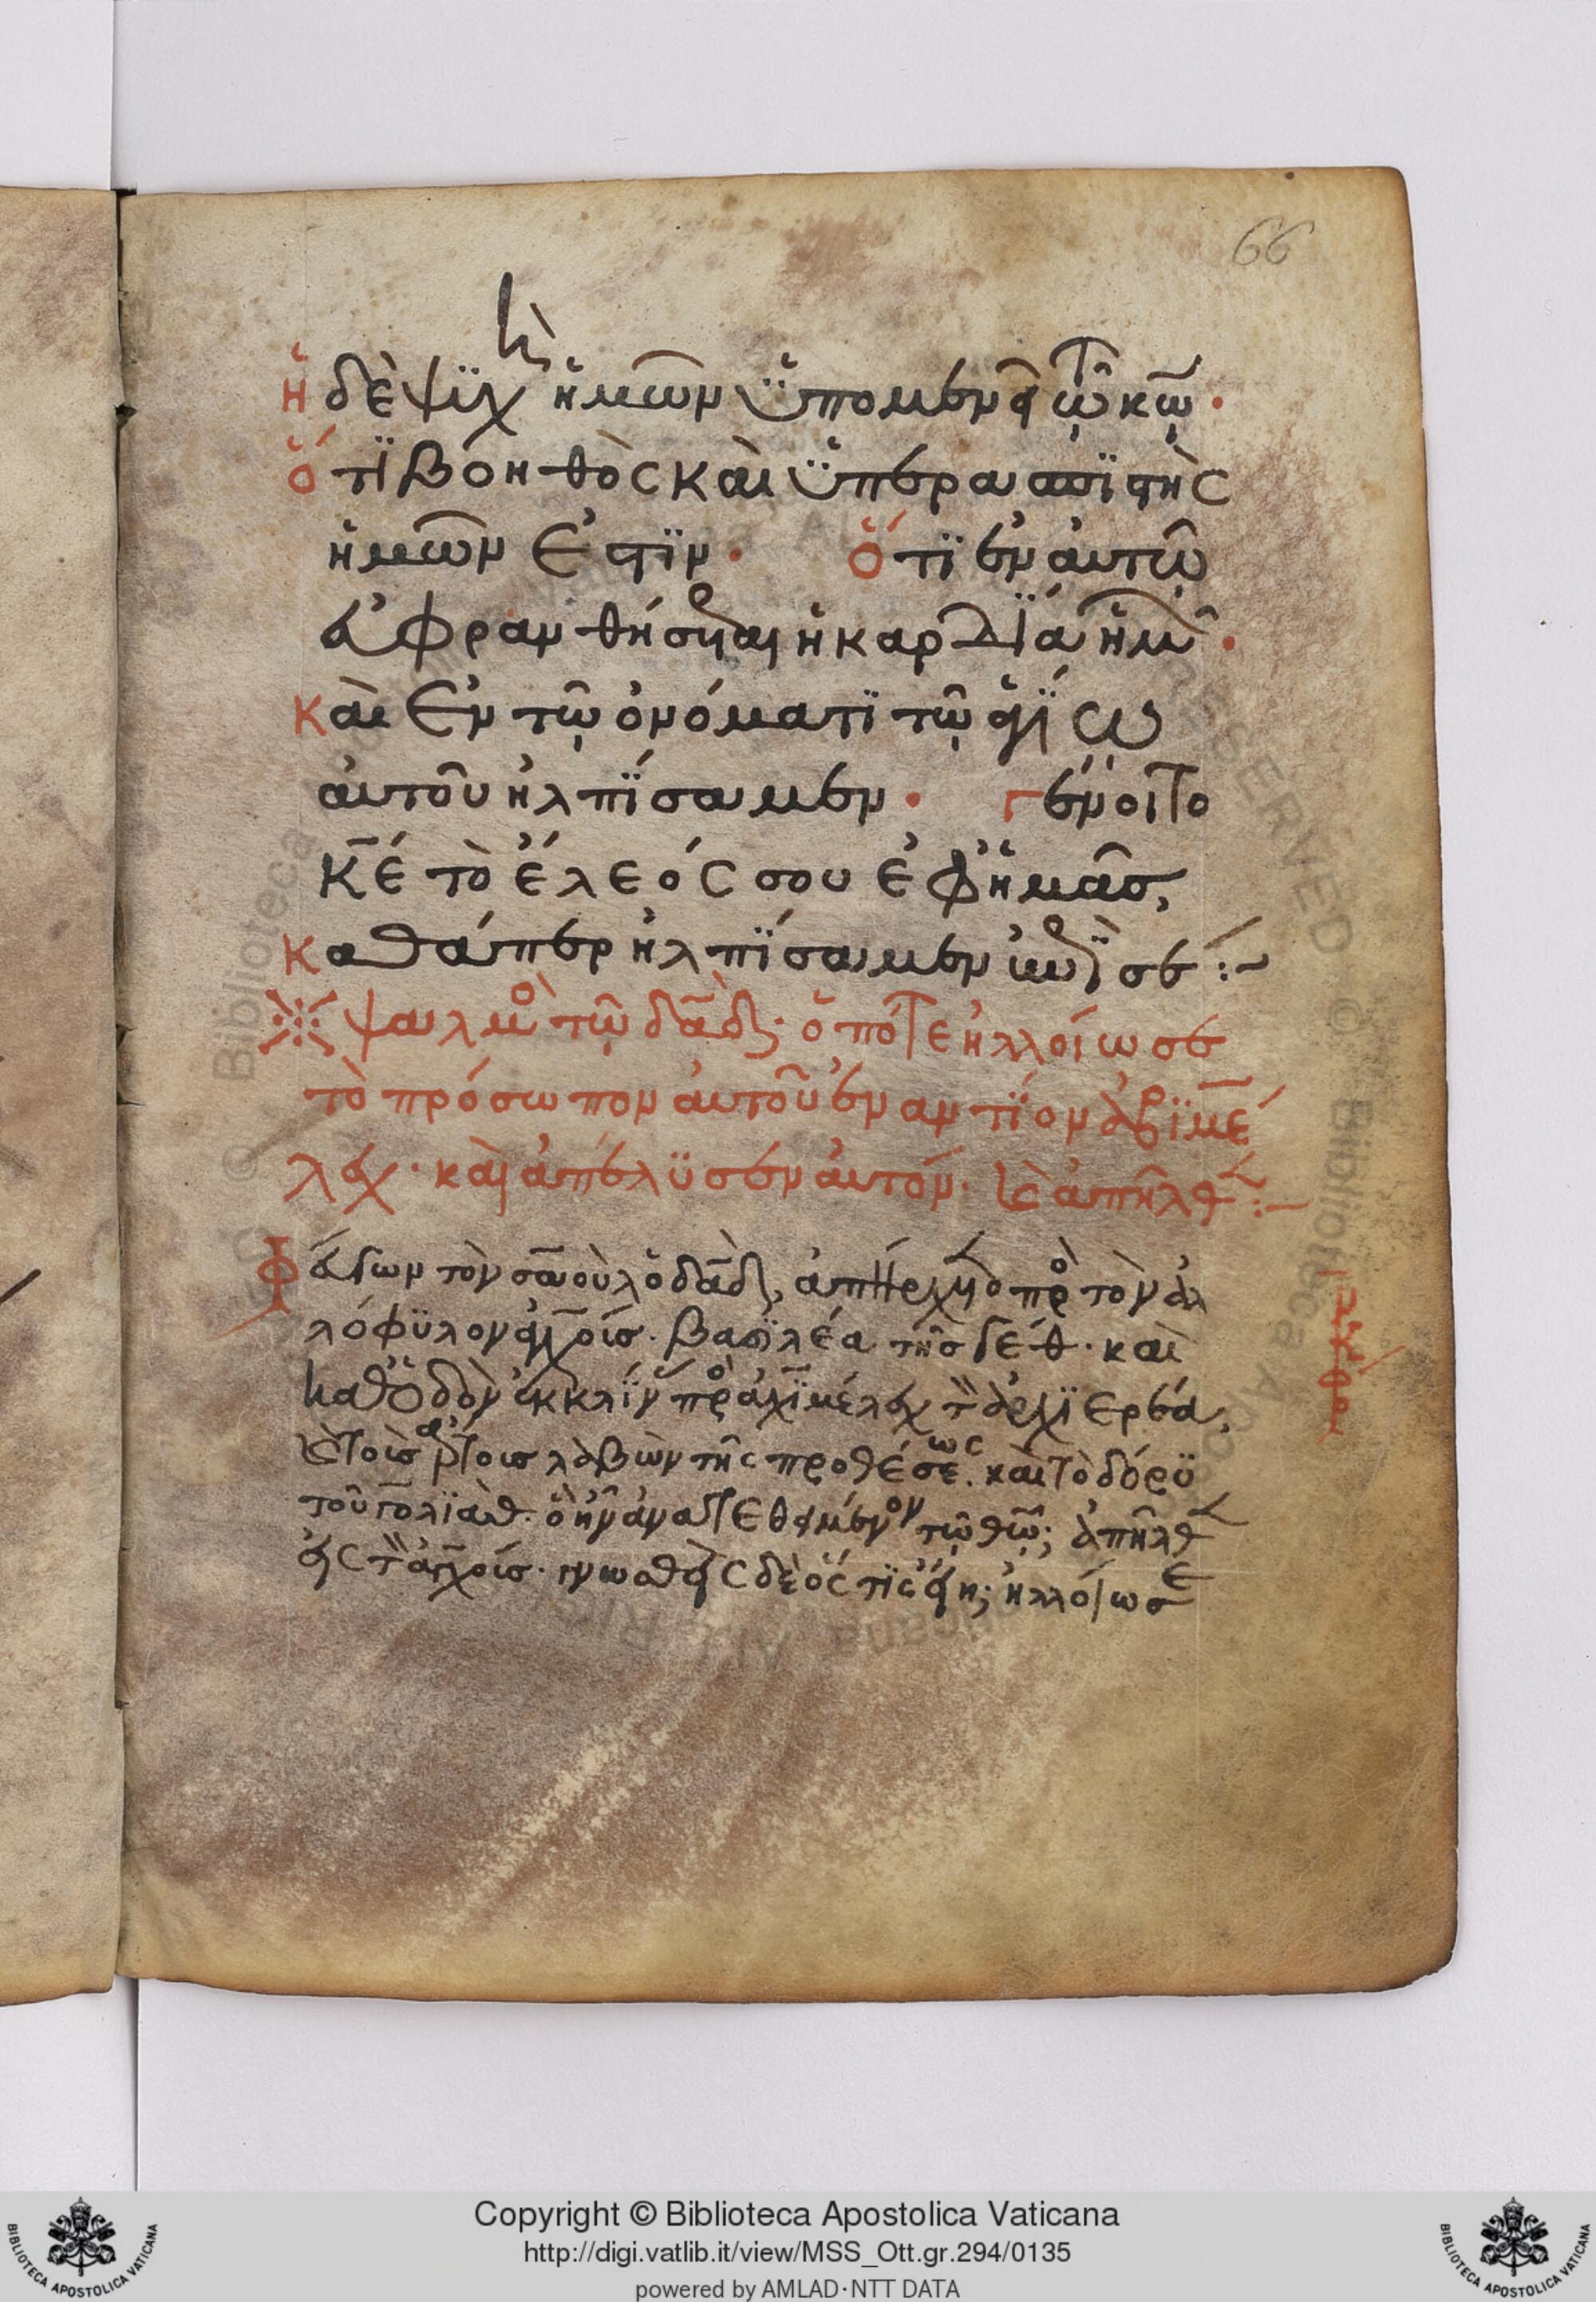 66
ἡ δὲ ψυχὴ ἡμῶν ὑπομενεῖ τῷ κῷ·
ὅτι βοηθὸς καὶ ὑπερασπιστὴς
ἡμῶν ἐστιν· ὅτι ἐν αὐτῷ
εὐφρανθήσεται ἡ καρδία ἡμῶν·
καὶ ἐν τῷ ὀνόματι τῷ ἁγίῳ
αὐτοῦ ἠλπίσαμεν· γένοιτο
κε τὸ ἔλεός σου ἐφ ἡμᾶς,
καθάπερ ἠλπίσαμεν ἐπὶ σέ:~
ψαλμὸς τῷ δαδ· ὁπότε ἠλλοίωσε
τὸ πρόσωπον αὐτοῦ ἐναντίον ἀβιμέ
λεχ· καὶ ἀπέλυσεν αὐτόν· καὶ ἀπῆλθεν:~
Φεύγων τὸν σαοὺλ ὁ δαδ, ἀπήρχετο πρὸς τὸν ἀλ
λόφυλον ἀγχοῦς· βασιλέα τῆς γέθ· καὶ
καθ ὁδὸν ἐκκλίνας πρὸς ἀχιμέλεχ τὸν ἀρχιερέα,
καὶ τοὺς ἄρτους λαβὼν τῆς προθέσεως· καὶ τὸ δόρυ
τοῦ γολιάθ· ὃ ἦν ἀνατεθειμένον τῷ θῷ; ἀπῆλθεν
εἰς τὸν ἀγχοῦς· γνωσθεὶς δὲ ὅστις εἴη; ἠλλοίωσε
Copyright © Biblioteca Apostolica Vaticana
http://digi.vatlib.it/view/MSS_Ott.gr.294/0135
powered by AMLAD·NTT DATA
BIBLIOTECA APOSTOLICA VATICANA
BIBLIOTECA APOSTOLICA VATICANA